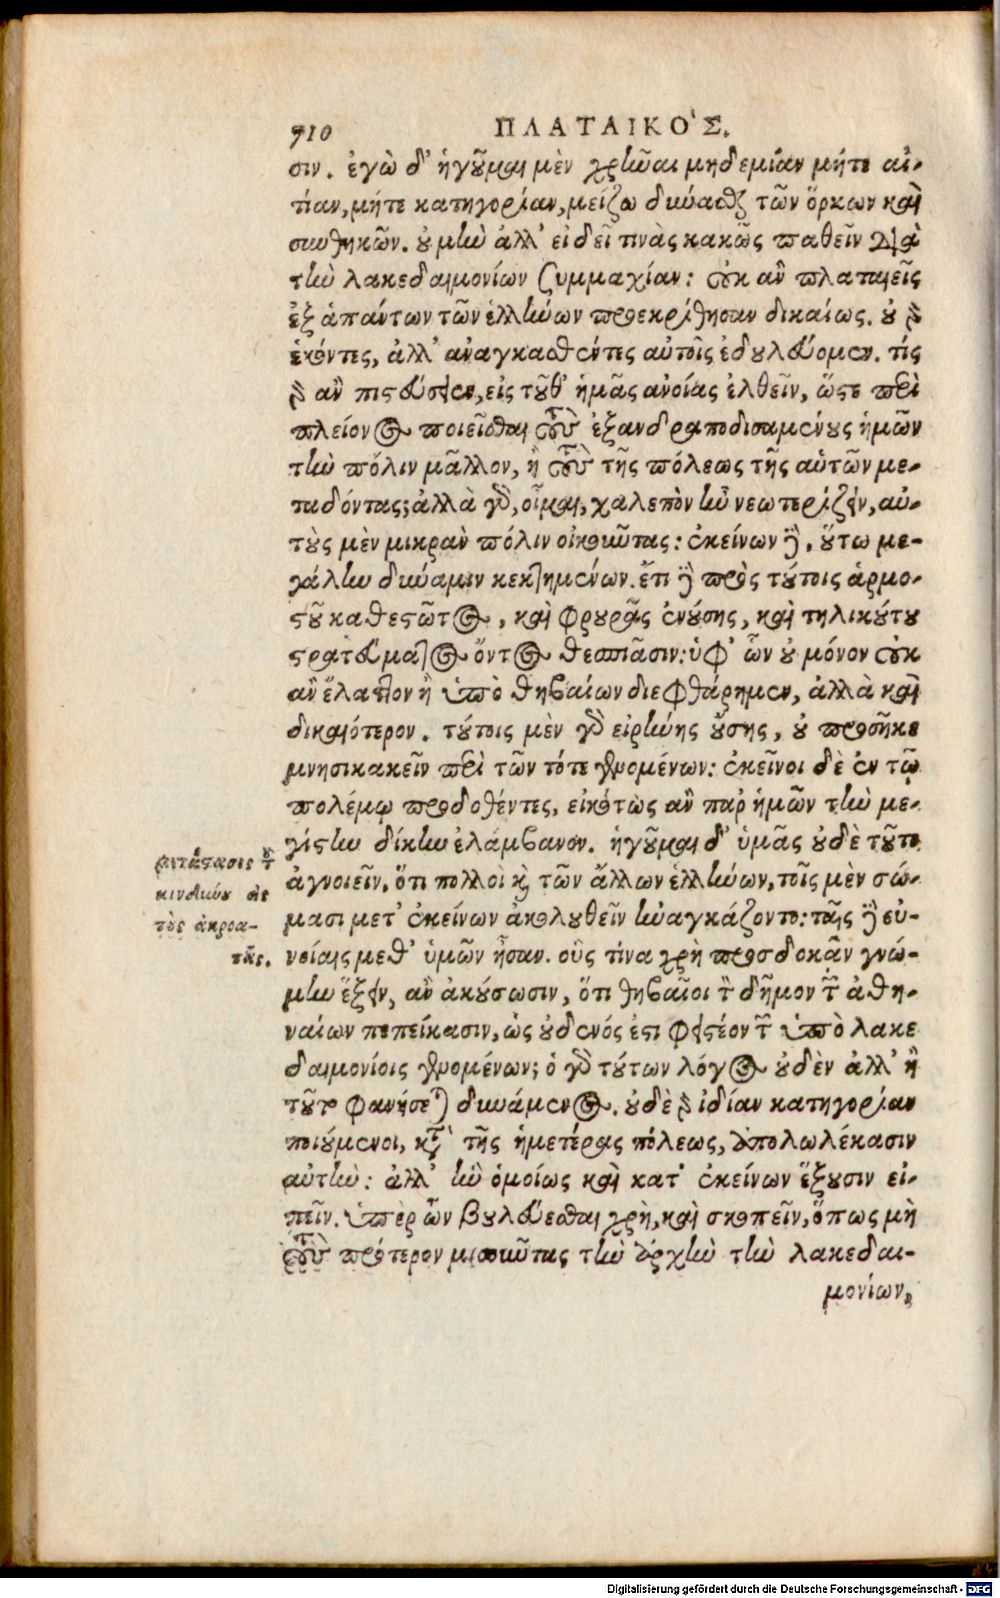 710 ΠΛΑΤΑΙΚΟ'Σ.
σιν. ἐγὼ δ' ἡγοῦμαι μὲν χρῆναι μηδεμίαν μήτε αἰ-
τίαν, μήτε κατηγορίαν, μείζω δύνασθαι τῶν ὅρκων καὶ
συνθηκῶν. οὐ μὴν ἀλλ' εἰ δεῖ τινὰς κακῶς παθεῖν διὰ
τὴν λακεδαιμονίων ξυμμαχίαν: οὐκ ἂν πλαταιεῖς
ἐξ ἁπάντων τῶν ἑλλήνων προεκρίθησαν δικαίως. οὐ γὰρ
ἑκόντες, ἀλλ' ἀναγκασθέντες αὐτοῖς ἐδουλεύομεν. τίς
γὰρ ἂν πιστεύσειεν, εἰς τοῦθ' ἡμᾶς ἀνοίας ἐλθεῖν, ὥστε περὶ
πλείονος ποιεῖσθαι τοὺς ἐξανδραποδισαμένους ἡμῶν
τὴν πόλιν μᾶλλον, ἢ τοὺς τῆς πόλεως τῆς αὑτῶν με-
ταδόντας; ἀλλὰ γὰρ, οἶμαι, χαλεπὸν ἦν νεωτερίζειν, αὐ-
τοὺς μὲν μικρὰν πόλιν οἰκοῦντας: ἐκείνων δὲ, οὕτω με-
γάλην δύναμιν κεκτημένων. ἔτι δὲ πρὸς τούτοις ἁρμο-
στοῦ καθεστῶτος, καὶ φρουρᾶς ἐνούσης, καὶ τηλικούτου
στρατεύματος ὄντος θεσπιᾶσιν: ὑφ' ὧν οὐ μόνον οὐκ
ἂν ἔλαττον ἢ ὑπὸ θηβαίων διεφθάρημεν, ἀλλὰ καὶ
δικαιότερον. τούτοις μὲν γὰρ εἰρήνης οὔσης, οὐ προσῆκε
μνησικακεῖν περὶ τῶν τότε γενομένων: ἐκεῖνοι δὲ ἐν τῷ
πολέμῳ προδοθέντες, εἰκότως ἂν παρ' ἡμῶν τὴν με-
γίστην δίκην ἐλάμβανον. ἡγοῦμαι δ' ὑμᾶς οὐδὲ τοῦτο
ἀγνοιεῖν, ὅτι πολλοὶ καὶ τῶν ἄλλων ἑλλήνων, τοῖς μὲν σώ-
μασι μετ' ἐκείνων ἀκολουθεῖν ἠναγκάζοντο: ταῖς δὲ εὐ-
νοίαις μεθ' ὑμῶν ἦσαν. οὓς τίνα χρὴ προσδοκᾶν γνώ-
μην ἕξειν, ἂν ἀκούσωσιν, ὅτι θηβαῖοι τὸν δῆμον τὸν ἀθη-
ναίων πεπείκασιν, ὡς οὐδενός ἐστι φειστέον τῶν ὑπὸ λακε
δαιμονίοις γενομένων; ὁ γὰρ τούτων λόγος οὐδὲν ἀλλ' ἢ
τοῦτο φανήσεται δυνάμενος. οὐδὲ γὰρ ἰδίαν κατηγορίαν
ποιούμενοι, κατὰ τῆς ἡμετέρας πόλεως, ἀπολωλέκασιν
αὐτὴν: ἀλλ' ἣν ὁμοίως καὶ κατ' ἐκείνων ἕξουσιν εἰ-
πεῖν. ὑπὲρ ὧν βουλεύεσθαι χρὴ, καὶ σκοπεῖν, ὅπως μὴ
τοὺς πρότερον μισοῦντας τὴν ἀρχὴν τὴν λακεδαι-
μονίων,
μετάστασις τοῦ
κινδύνου εἰς
τοὺς ἀκροα-
τάς.
Digitalisierung gefördert durch die Deutsche Forschungsgemeinschaft - DFG